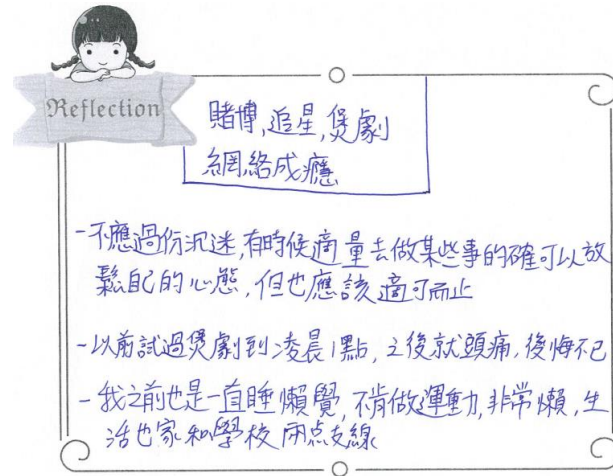 Reflection
賭博,追星,煲劇
網絡成癮
-不應過份沉迷,有時候適量去做某些事的確可以放
鬆自己的心態,但也應該適可而止
-以前試過煲劇到凌晨1點,之後就頭痛,後悔不已
-我之前也是一直睡懶覺,不肯做運動,非常懶,生
活也家和學校兩点支線